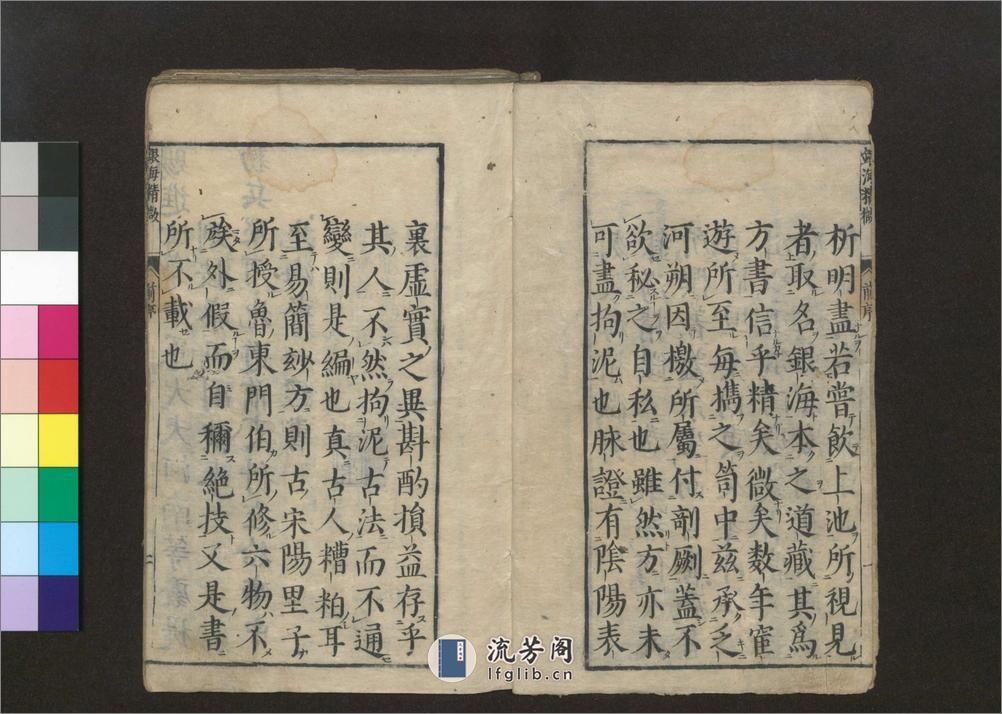 析明盡若嘗飲上池所視見
者取名銀海本之道藏其爲
方書信乎精矣微矣数年宦
遊所至每攜之笥中茲承乏
河朔因檄所屬付剞劂蓋不
欲秘之自私也雖然方亦未
可盡拘泥也脉證有陰陽表
裏虛實之異斟酌損益存乎
其人不然拘泥古法而不通
變則是編也真古人糟粕耳
至易簡玅方則古宋陽里子
所授魯東門伯所修六物不
族外假而自稱絶技又是書
所不載也
銀海精微
前序
二
流芳阁
lfglib.cn